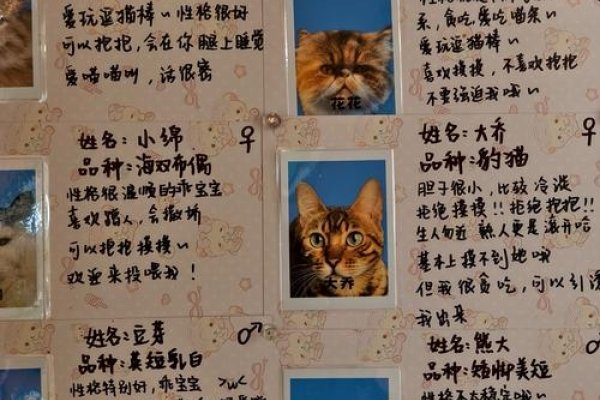 爱玩逗猫棒~性格很好
可以抱抱,会在你腿上睡觉
爱喵喵叫,话很密
系,贪吃,爱吃猫条~
爱玩逗猫棒~
喜欢摸摸,不喜欢抱抱
不要强迫我哦~
花花
姓名:小绵 ♀
品种:海双布偶
性格很温顺的乖宝宝
喜欢踏人,会撒娇
可以抱抱摸摸~
欢迎来投喂我!
姓名:大乔 ♀
品种:豹猫
胆子很小,比较冷淡
拒绝摸摸!!拒绝抱抱!!
生人勿近 熟人更是滚开哈
基本上摸不到她哦
但我很贪吃,可以引诱
我出来
大乔
姓名:豆芽 ♂
品种:英短乳白
性格特别好,乖宝宝 >w<
姓名:熊大
品种:矮脚美短